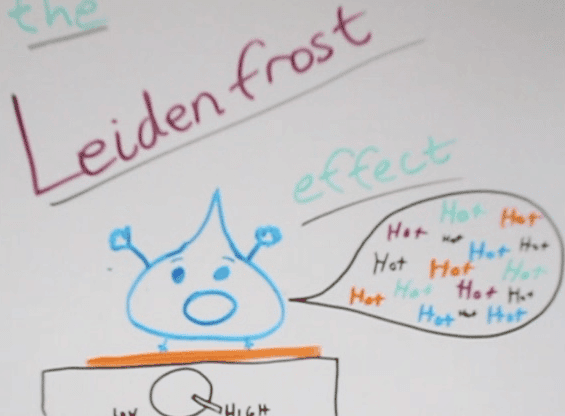 the
Leidenfrost
effect
Hot Hot
Hot Hot Hot Hot
Hot Hot Hot
Hot Hot Hot Hot
Hot Hot Hot
LOW HIGH